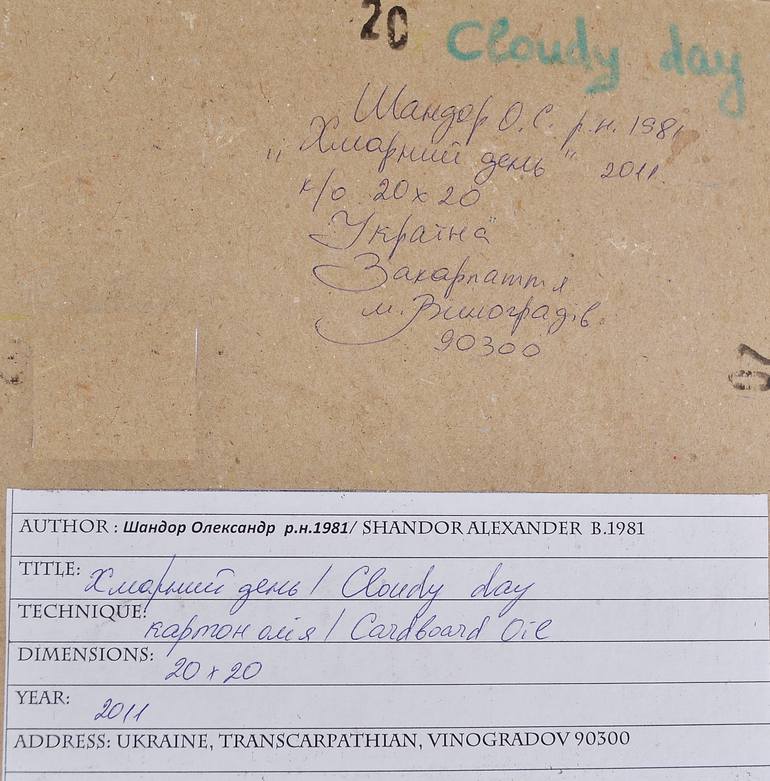 20
Cloudy day
Шандор О.С. р.н. 1981
"Хмарний день" 2011
к/о 20х20
Україна
Закарпаття
м. Виноградів
90300
20
AUTHOR : Шандор Олександр р.н.1981/ SHANDOR ALEXANDER B.1981
TITLE: Хмарний день / Cloudy day
TECHNIQUE: картон олія / Cardboard Oil
DIMENSIONS: 20 x 20
YEAR: 2011
ADDRESS: UKRAINE, TRANSCARPATHIAN, VINOGRADOV 90300